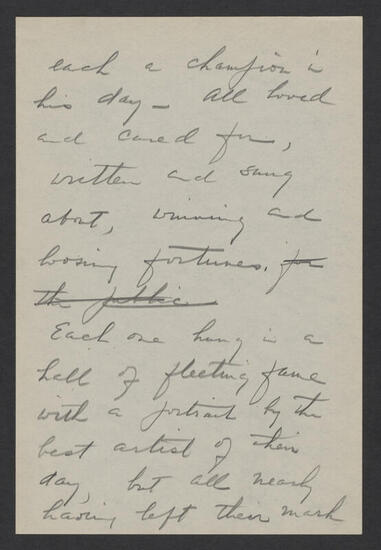 each a champion in
his day - All loved
and cared for,
written and sung
about, winning and
loosing fortunes. for
the public
Each one hung in a
hall of fleeting fame
with a portrait by the
best artist of their
day, but all nearly
having left their mark